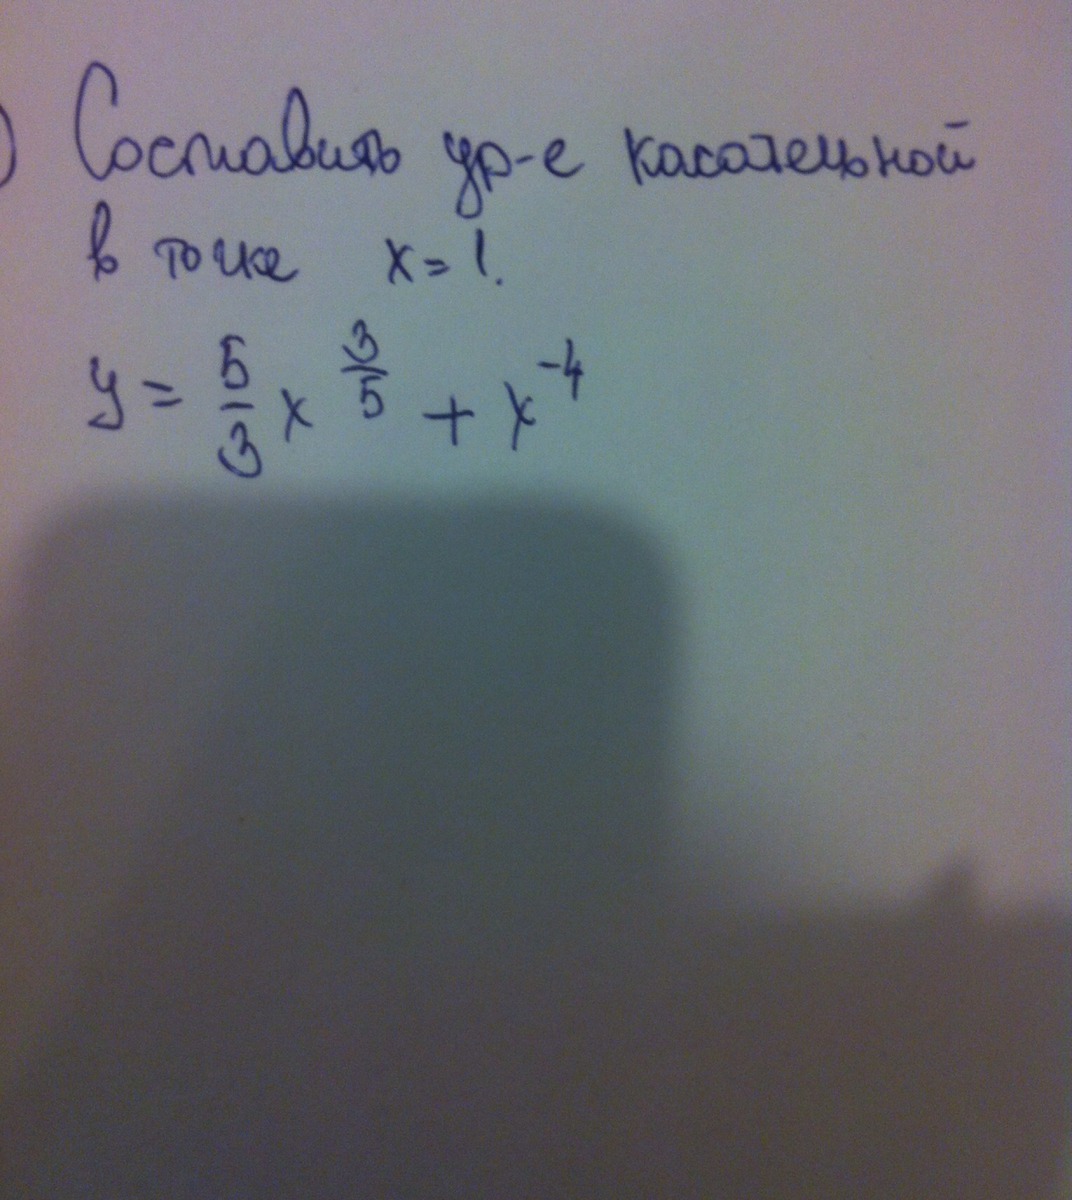 ) Составить ур-е касательной
в точке x = 1.
y = 5/3 x^(3/5) + x^(-4)